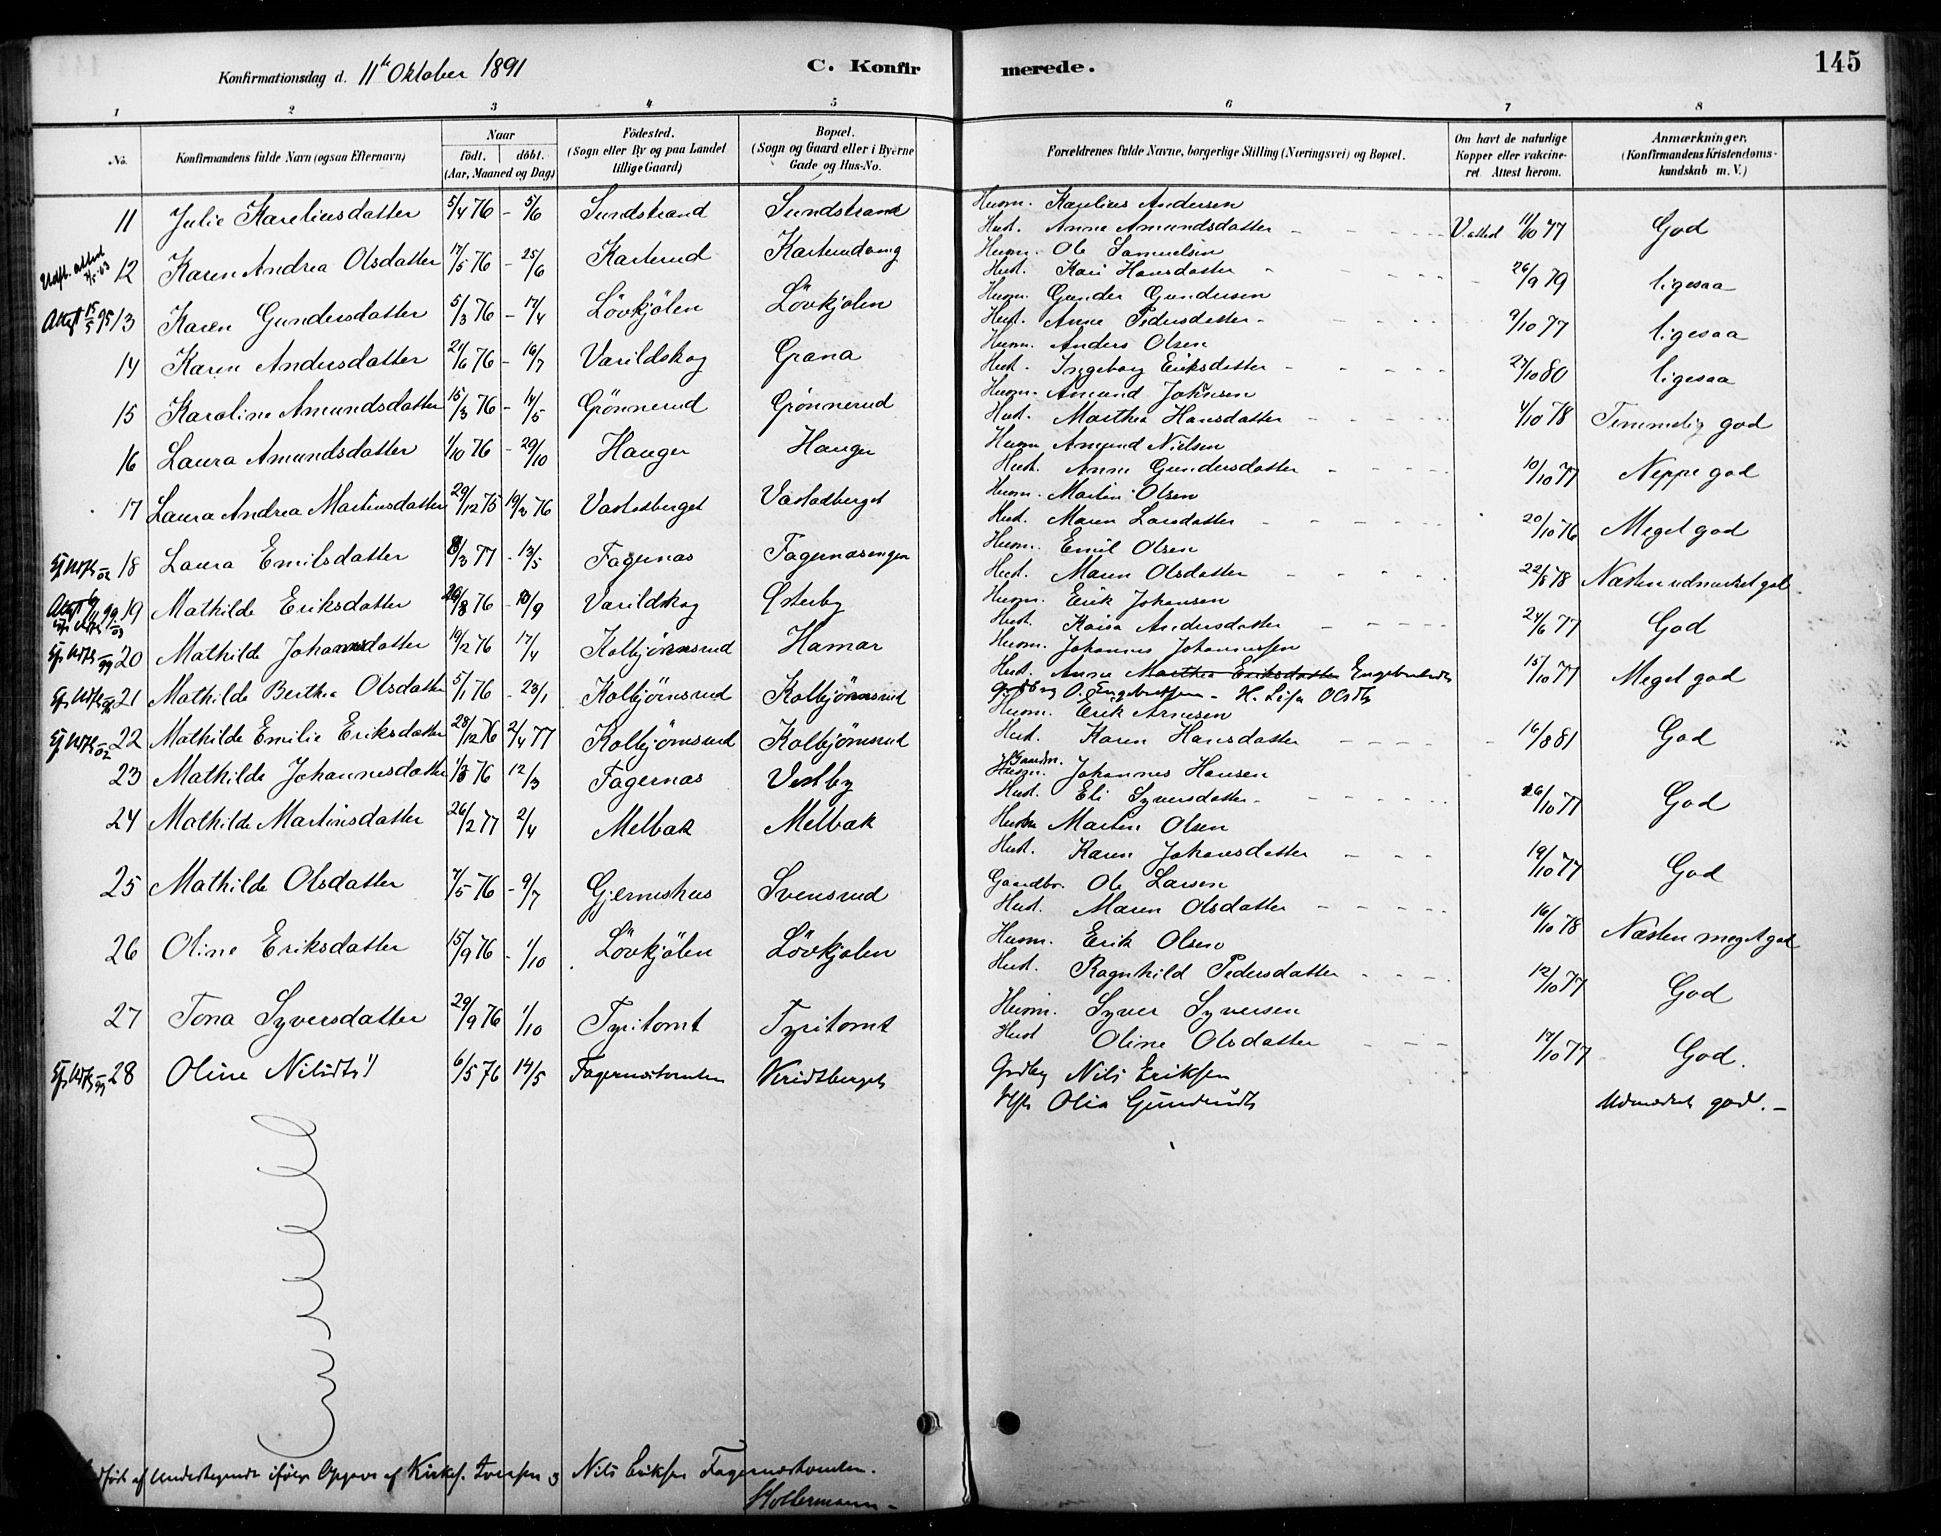 Konfirmationsdag d. 11te Oktober 1891 C. Konfirmerede. 145
1 2 3 4 5 6 7 8
No. Konfirmandens fulde Navn (ogsaa Efternavn) Naar födt. döbt. (Aar, Maaned og Dag) Födested. (Sogn eller By og paa Landet tillige Gaard) Bopæl. (Sogn og Gaard eller i Byerne Gade og Hus-No. Forældrenes fulde Navne, borgerlige Stilling (Næringsvei) og Bopæl. Om havt de naturlige Kopper eller vakcineret. Attest herom. Anmærkninger, (Konfirmandens Kristendomskundskab m. V.)
11 Julie Kareliusdatter 5/4 76 - 5/6 Sundstrand Sundstrand Husm. Karelius Andersen
Hust. Anne Amundsdatter - - - V. attest 11/10 77 God
12 Karen Andrea Olsdatter 17/5 76 - 25/6 Karterud Karterudeng Husm. Ole Samuelsen
Hust. Kari Hansdatter - - - 26/9 79 ligesaa
Attest 15/5 95 13 Karen Gundersdatter 5/3 76 - 17/4 Lövkjölen Lövkjolen Husm. Gunder Gundersen
Hust. Anne Pedersdatter - - - 9/10 77 ligesaa
14 Karen Andersdatter 21/6 76 - 16/7 Varildskog Grana Husm. Anders Olsen
Hust. Ingeborg Eriksdatter - - - 27/10 80 ligesaa
15 Karoline Amundsdatter 15/3 76 - 14/5 Grönnerud Grönnerud Husm. Amund Johnsen
Hust. Marthea Hansdatter - - - 4/10 78 Temmelig god
16 Laura Amundsdatter 1/10 76 - 29/10 Hauger Hauger Husm Amund Nielsen
Hust. Anne Gundersdatter - - - 10/10 77 Neppe god
17 Laura Andrea Martinsdatter 29/12 75 19/3 76 Vastadberget Vastadberget Husm. Martin Olsen
Hust. Maren Larsdatter - - - 20/10 76 Meget god
18 Laura Emilsdatter 8/3 77 - 13/5 Fagernas Fagernasengen Husm. Emil Olsen
Hust. Maren Olsdatter - - - 22/8 78 Næsten udmerket god.
19 Mathilde Eriksdatter /8 76 - /9 Varildskog Østerby Husm. Erik Johansen
Hust. Kaisa Andersdatter - - - 24/6 77 God
20 Mathilde Johannesdatter 19/2 76 17/4 Kolbjörnsrud Hamar Husm. Johannes Johannessen
Hust. Anne Marthea Eriksdatter Engebretsdtr 15/10 77 Meget god
21 Mathilde Berthe Olsdatter 5/1 76 - 23/1 Kolbjörnsrud Kolbjörnsrud O. Engebretsen - H. Lisa Olsdtr
22 Mathilde Emilie Eriksdatter 28/12 76 2/4 77 Kolbjörnsrud Kolbjörnsrud Husm. Erik Arnesen
Hust. Karen Hansdatter - - - 16/8 81 God
23 Mathilde Johannesdatter 76 12/3 Fagernas Vestby Gaardm. Husm. Johannes Hansen
Hust. Eli Syversdatter - - - 26/10 77 God
24 Mathilde Martinsdatter 26/2 77 2/4 Melbak Melbak Martin Olsen
Hust. Karen Johansdatter - - - 19/10 77 God
25 Mathilde Olsdatter 7/5 76 - 9/7 Gjerneshus Svensrud Gaardbr. Ole Larsen
Hust. Maren Olsdatter - - - 16/10 78 Næsten meget god
26 Oline Eriksdatter 15/9 76 - 1/10 Lövkjölen Lövkjölen Husm. Erik Olsen
Hust. Ragnhild Pedersdatter - - - 12/10 77 God
27 Tona Syversdatter 29/9 76 1/10 Tyritomt Tyritomt Husm. Syver Syversen
Hust Oline Olsdatter - - - 17/10 77 God.
28 Oline Nilsdtr 1) 6/5 76 14/5 Fagernæstomten Kridtberget Nils Eriksen
Olia Gundersdtr Udmærket god. -
af Undertegnede ifölge Opgave af Kirkes. Iversen og Nils Eriksen Fagernæstomten.